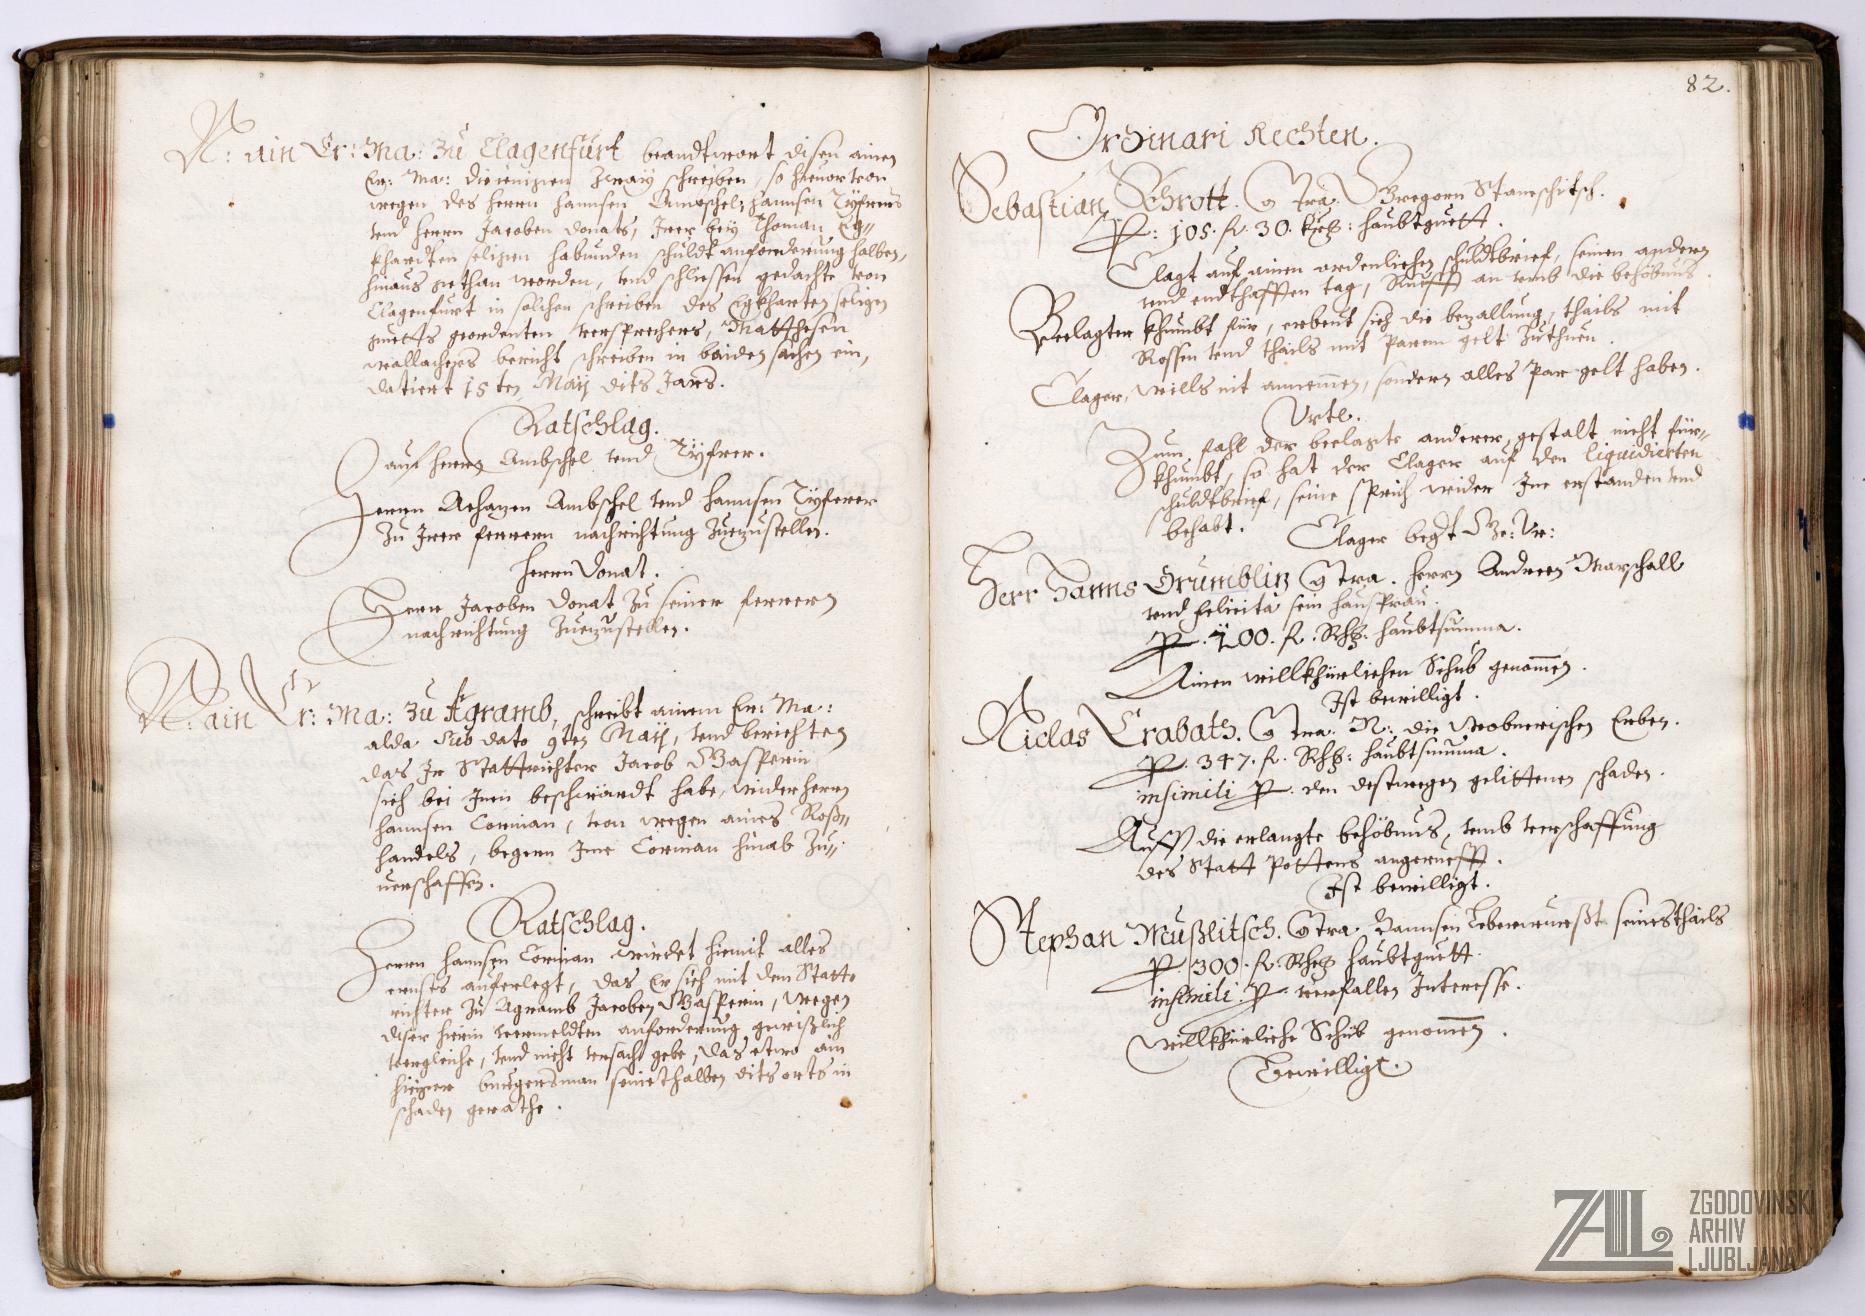 N: ain Er: Ma: zu Clagenfurt beandtwort disen ainen
Er: Ma: diejenigen zway schreiben, so hieuor von
wegen des herrn hannsen Ambschel, hannsen Tÿfrers
vnd herrn Jacoben Donats, Irer beÿ Thoman Eg„
khardten seligen habunden schuldtanforderung halben,
hinaus gethan worden, vnd schliessen gedachte von
Clagenfurt in solchen schreiben des Egkharten seligen
guetts geordenten versprechers, Matthesen
wallachers bericht schreiben in baiden sachen ein,
datiert 15ten Maÿ dits Jars.
Ratschlag.
auf herrn Ambschel vnd Tÿfrer.
Herrn Achazen Ambschel vnd hannsen Tÿferer
zu Irer ferrern nachrichtung zuezustellen.
herrn Donat.
Herrn Jacoben Donat zu seiner ferrern
nachrichtung zuezustellen.
N: ain Er: Ma: zu Agramb, schreibt ainem Er: Ma:
alda sub dato 9ten Maÿ, vnd berichten
das Ir Stattrichter Jacob Gasperin
sich bei Inen beschwärdt habe, wider herrn
hannsen Cornian, von wegen aines Roß„
handels, begern Ime Cornian hinab zu„
uerschaffen.
Ratschlag.
Herrn hannsen Cornian wirdet hiemit alles
ernsts auferlegt, das Er sich mit dem Statt„
richter zu Agramb Jacoben Gasperin, wegen
diser hierin vermeldten anforderung gewißlich
vergleiche, vnd nicht vrsach gebe, das etwo ain
hieiger burgersman seinethalben dits orts in
schaden gerathe.
82.
Ordinari Rechten.
Sebastian Schrott. Contra. Gregorn Stamschitsch.
P: 105. fl. 30. kr: haubtguett.
Clagt auf ainen ordenlichen schuldtbrief, seinen andern
vnd endthafften tag, Ruefft an vmb die behöbnus.
Beclagter khumbt für, erbeut sich die bezallung, thails mit
Rossen vnd thails mit parem gelt zuthuen.
Clager, wills nit annemen, sondern alles par gelt haben.
Vrtl.
Zum fahl der beclagte anderer gestalt nicht für„
khumbt, so hat der Clager auf den liquidierten
schuldtbrief, seine sprüch wider Ine erstanden vnd
behabt. Clager begert Ge: Vr:
Herr Hanns Grumbliz Contra. herrn Andreen Marschall
vnd Felicita sein hausfrau.
P. 100. fl. Rh: haubtsumma.
Ainen willkhürlichen Schub genomen.
Ist bewilligt.
Niclas Crabath. Contra. N: die Wobnerischen Erben.
P. 347. fl. Rh: haubtsumma.
insimili P. den destwegen gelittenen schaden.
Auff die erlangte behöbnus, vmb verschaffung
des Statt Pottens angeruefft.
Ist bewilligt.
Stephan Mußlitsch. Contra. Hannsen Leberwurßt seinesthails
P. 300. fl. Rh: haubtguett.
insimili. P. verfallen Interesse.
willkhürliche Schub genomen.
Bewilligt.
ZAL
ZGODOVINSKI
ARHIV
LJUBLJANA